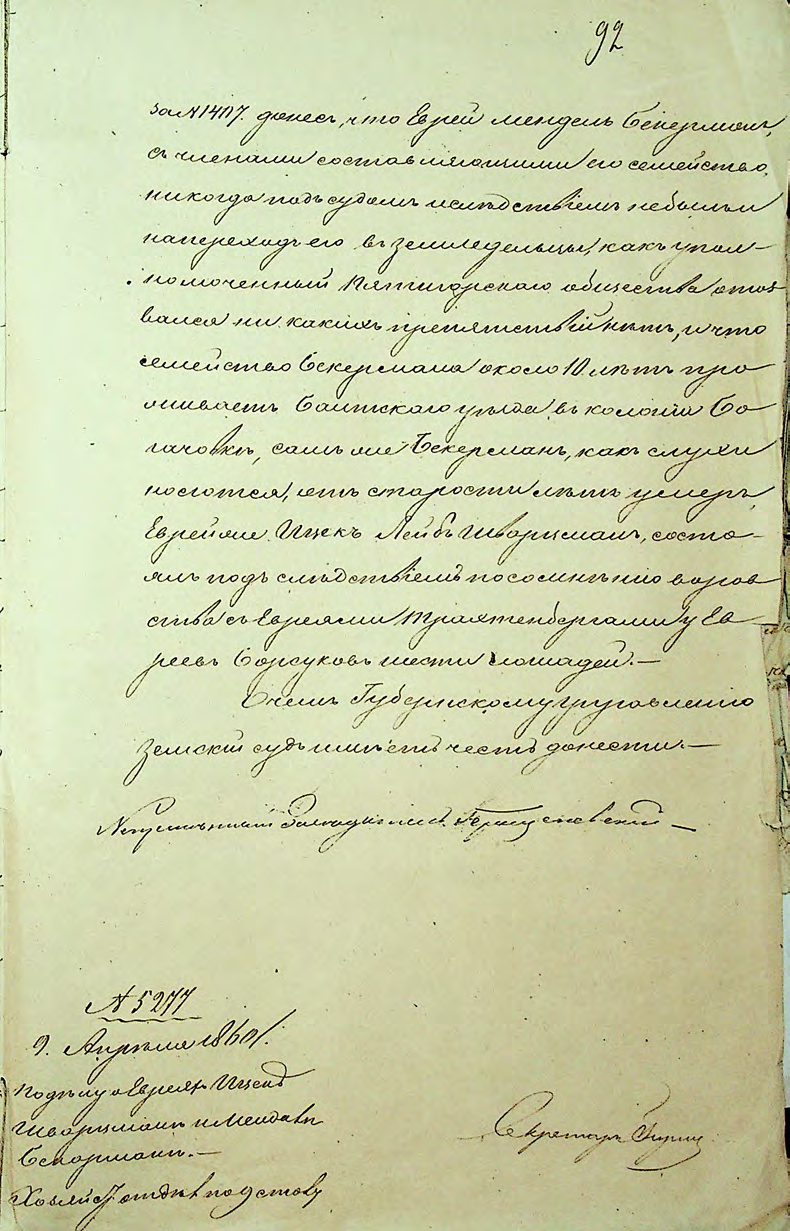 92
за N 1417. донес, что Еврей Мендель Бекерман,
съ членами составляющими его семейство,
никогда подъ судомъ и слѣдствіемъ небыли и
напереходъ его въ земледельцы, какъ упол-
номоченный Пятигорскаго общества отоз
вался ни какихъ препятствій нѣтъ, и что
семейство Бекермана около 10 лѣтъ про
живаетъ Балтскаго уѣзда въ колоніи Бо
гачовкѣ, самъ же Бекерманъ, какъ слухи
носятся, отъ старости лѣтъ умеръ,
Еврей же Ицекъ Лейбъ Шварцманъ, состо-
ялъ подъ слѣдствіемъ по сомнѣнію воров
ства съ Евреями Трахтенбергами у Ев
реевъ Борсуковъ шести лошадей.—
О чемъ Губернскому правленію
Земскій судъ имѣетъ честь донести.—
Непремѣнный Засѣдатель
N 5277
9. Апрѣля 1860 г.
По дѣлу о Евреяхъ Ицекѣ
Шварцманѣ и Менделѣ
Бекерманѣ.—
отдѣл по 9 столу
Секретарь